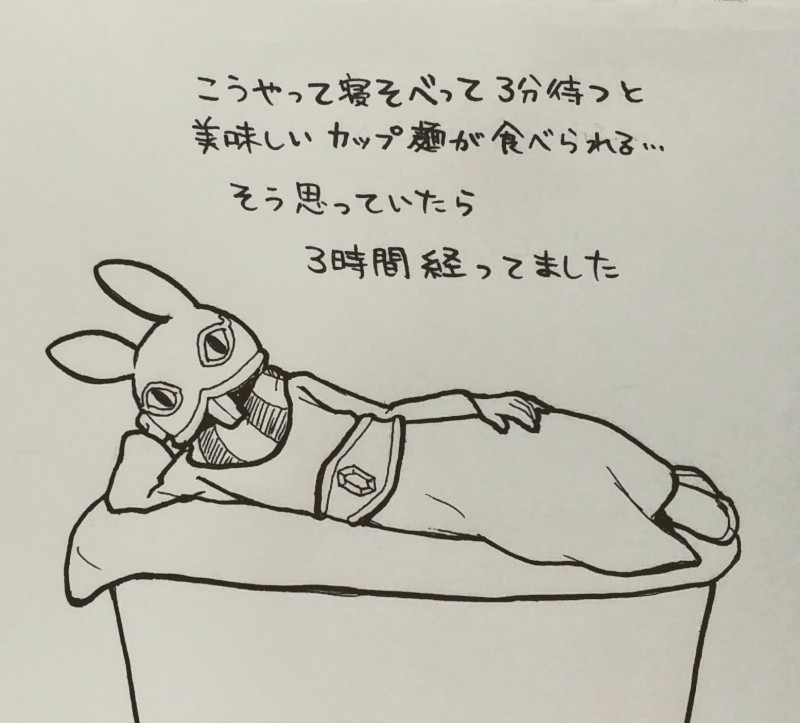 こうやって寝そべって3分待つと
美味しいカップ麺が食べられる…
そう思っていたら
3時間経ってました